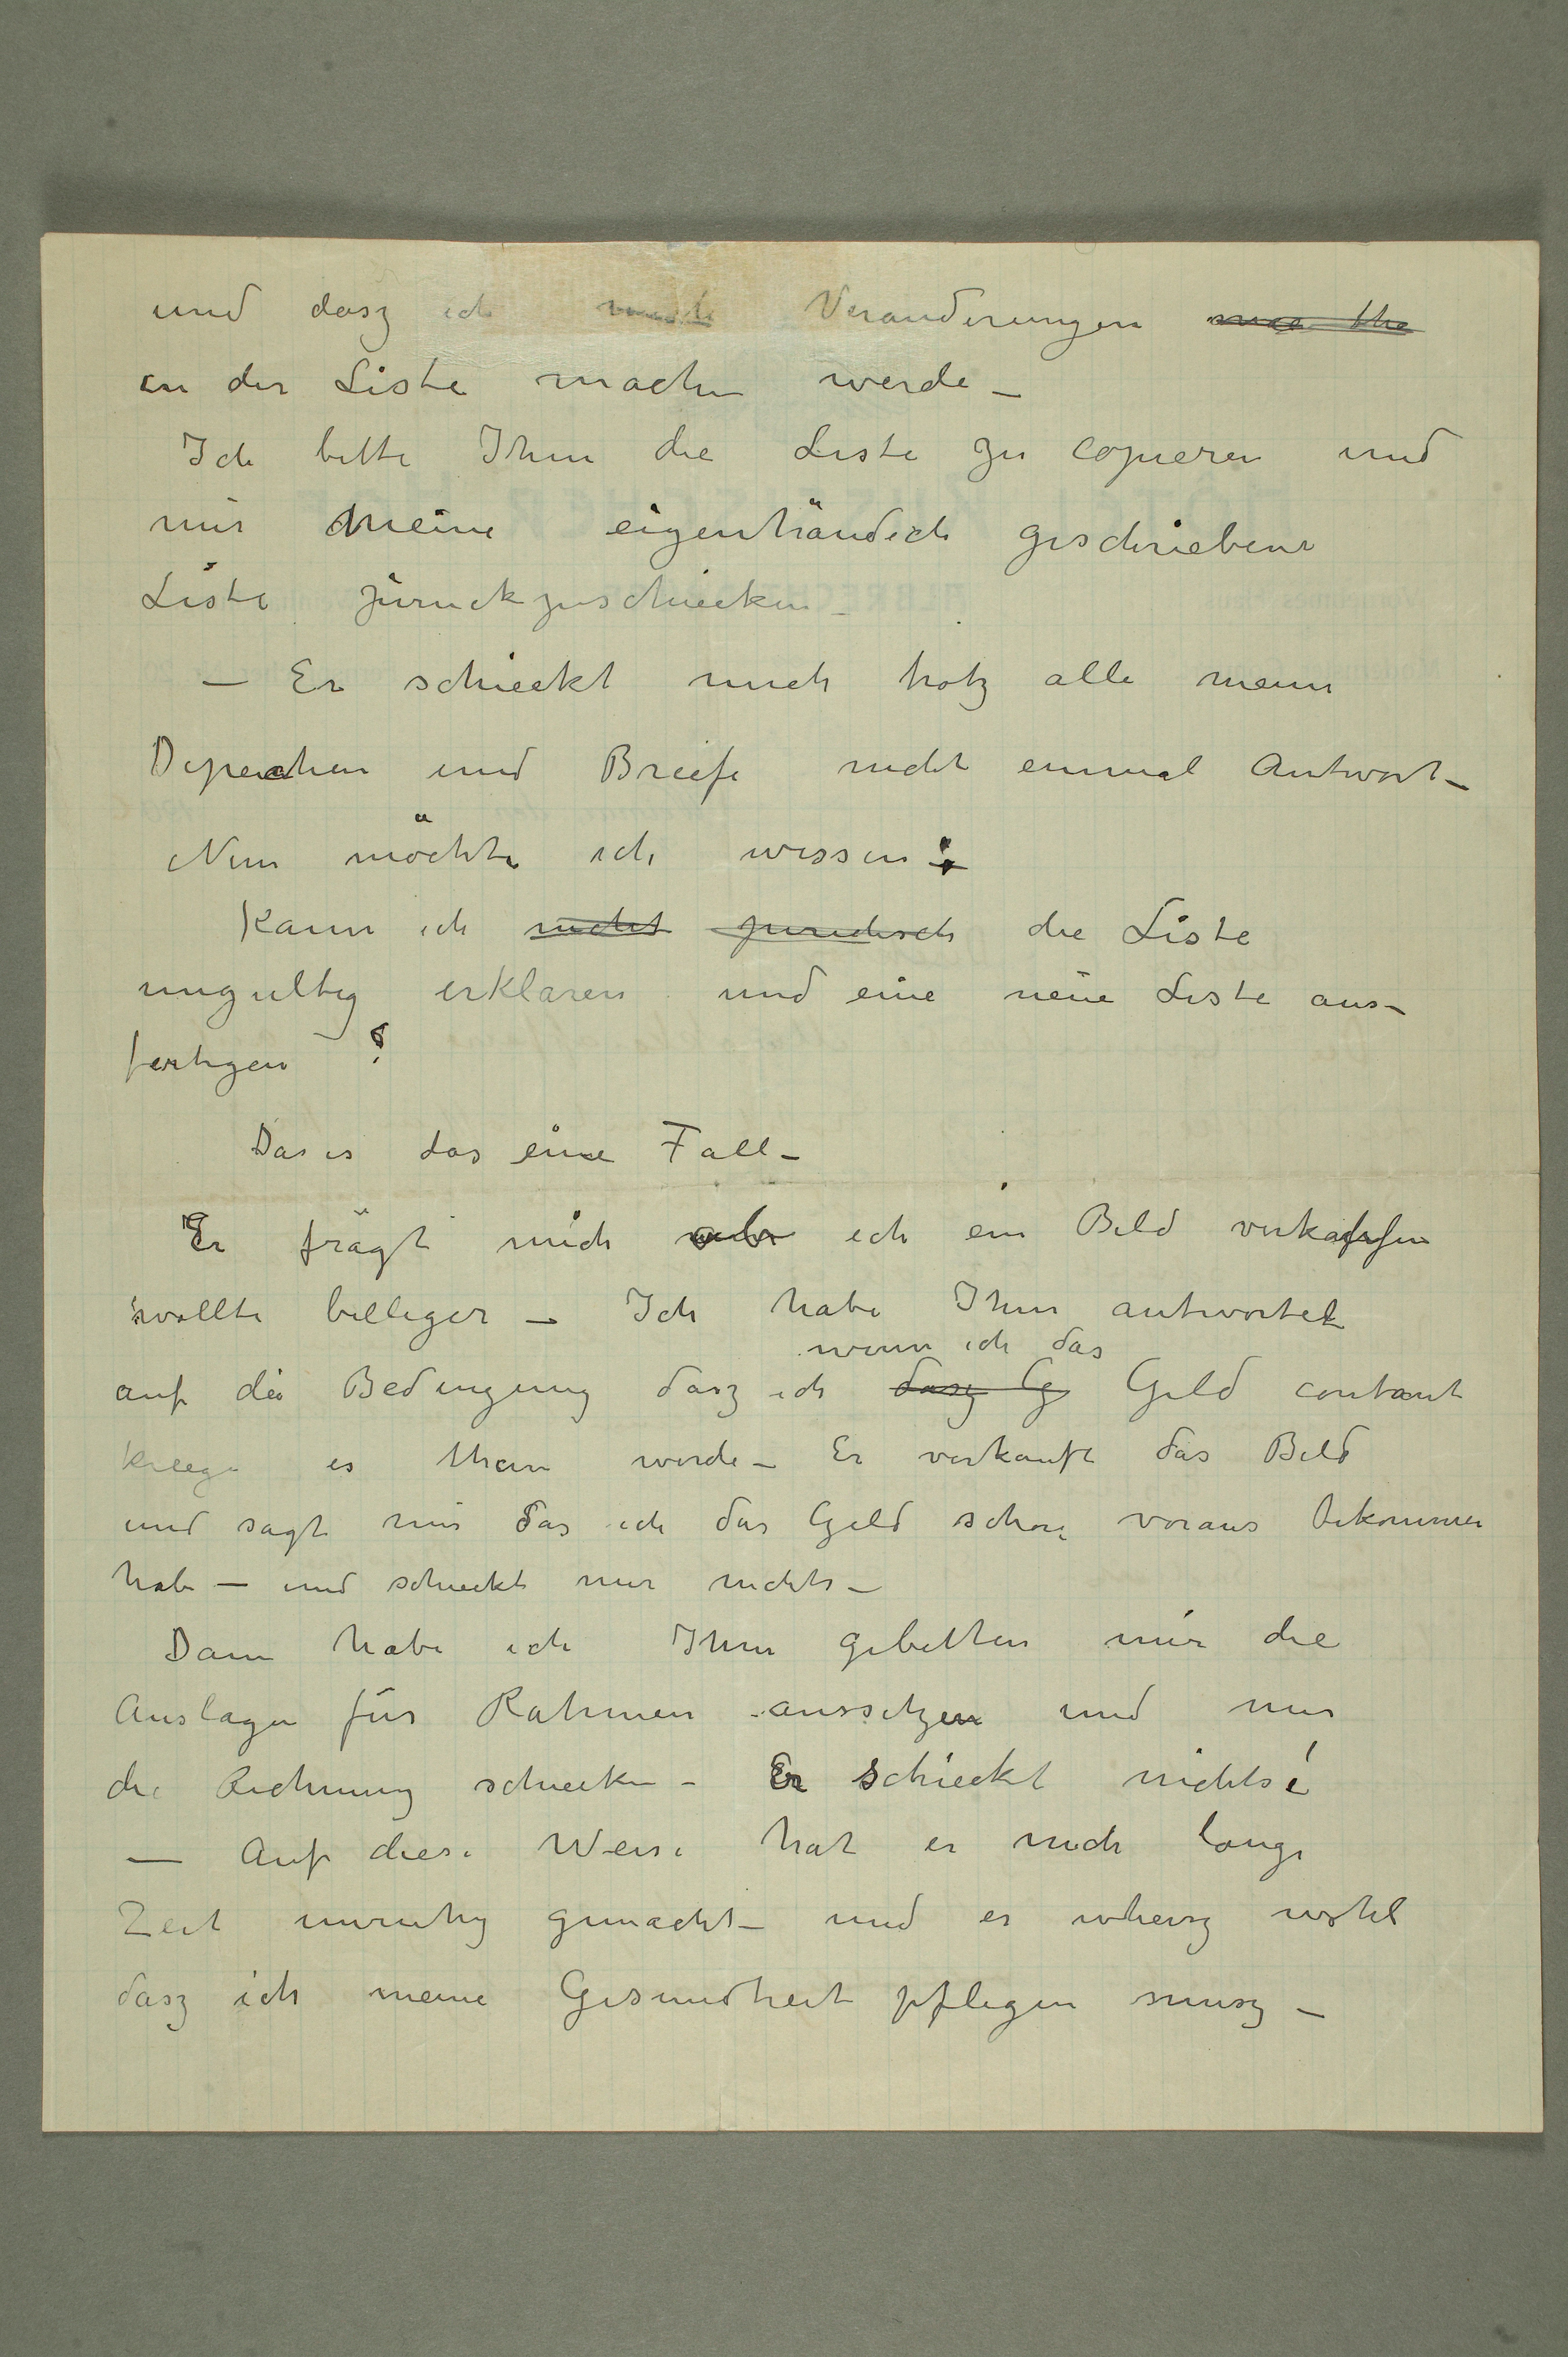 und dasz ich Veränderungen
in der Liste machen werde –
Ich bitte Ihm die Liste zu copieren und
mir meine eigenhändich geschriebene
Liste zürückzuschiecken –
– Er schieckt mich trotz alle meine
Depechen und Briefe nicht einmal Antwort –
Nun möchte ich wissen:
Kann ich nicht juridisch die Liste
ungultig erklären und eine neue Liste aus-
fertigen?
Das is das eine Fall –
Er frägt mich ich ein Bild verkaufen
wollte billiger – Ich habe Ihm antwortet
wenn ich das
auf die Bedingung dasz ich dasz G Geld contant
kriege es thun werde – Er verkauft das Bild
und sagt mir das ich das Geld schon voraus bekommen
habe – und schieckt mir nichts –
Dann habe ich Ihm gebetten mir die
Auslagen für Rahmen aussetzen und mir
die Rechnung schiecken – Er schieckt nichts!
– Auf diese Weise hat er mich lange
Zeit unruhig gemacht – und er wheisz wohl
dasz ich meine Gesundheit pflegen musz –